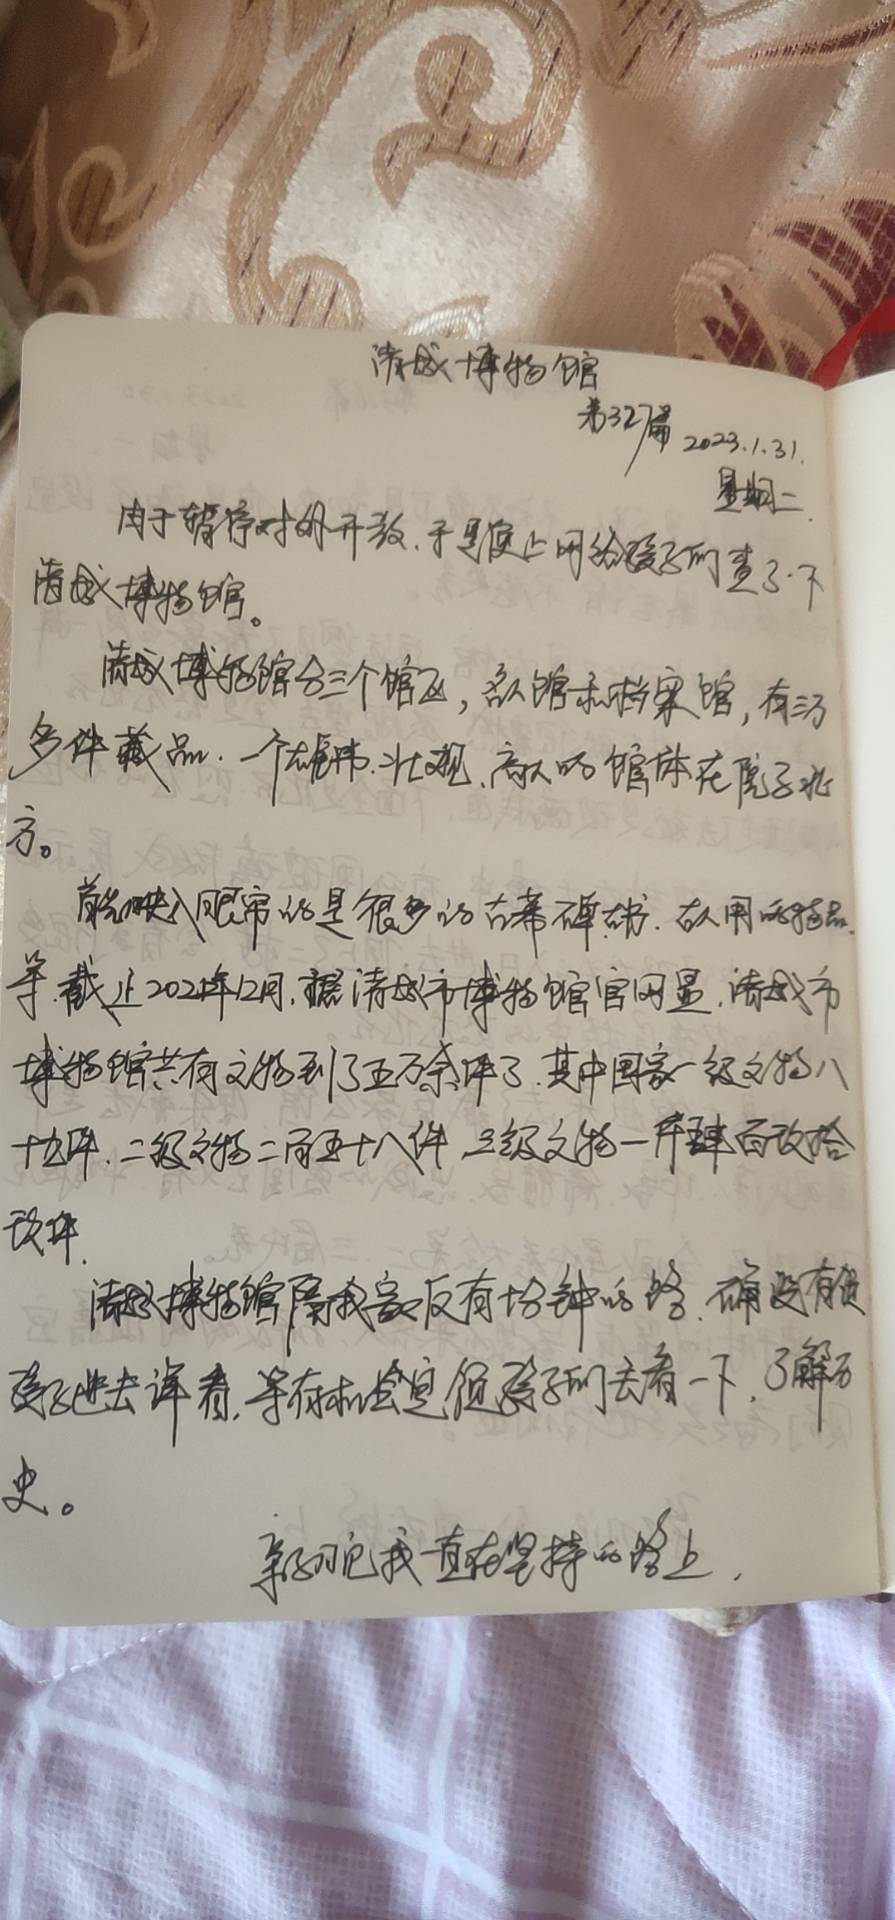 博物馆
第327篇 2023.1.31.
星期二.
由于暂停对外开放.于是便上网给孩子们查了一下
博物馆。
博物馆分三个馆区,名人馆和档案馆,有三万
多件藏品.一个雄伟.壮观.高大的馆体在院子北
方。
首先映入眼帘的是很多的古墓碑.古书.古人用的物品.
等.截止2021年12月.据市博物馆官网显.市
博物馆共有文物到了五万余件了.其中国家一级文物八
十五件.二级文物二百五十八件,三级文物一仟肆百玖拾
玖件.
博物馆隔我家仅有十分钟的路.确没有使
孩子进去详看,等有机会定领孩子们去看一下,了解历
史。
我一直在坚持的路上.